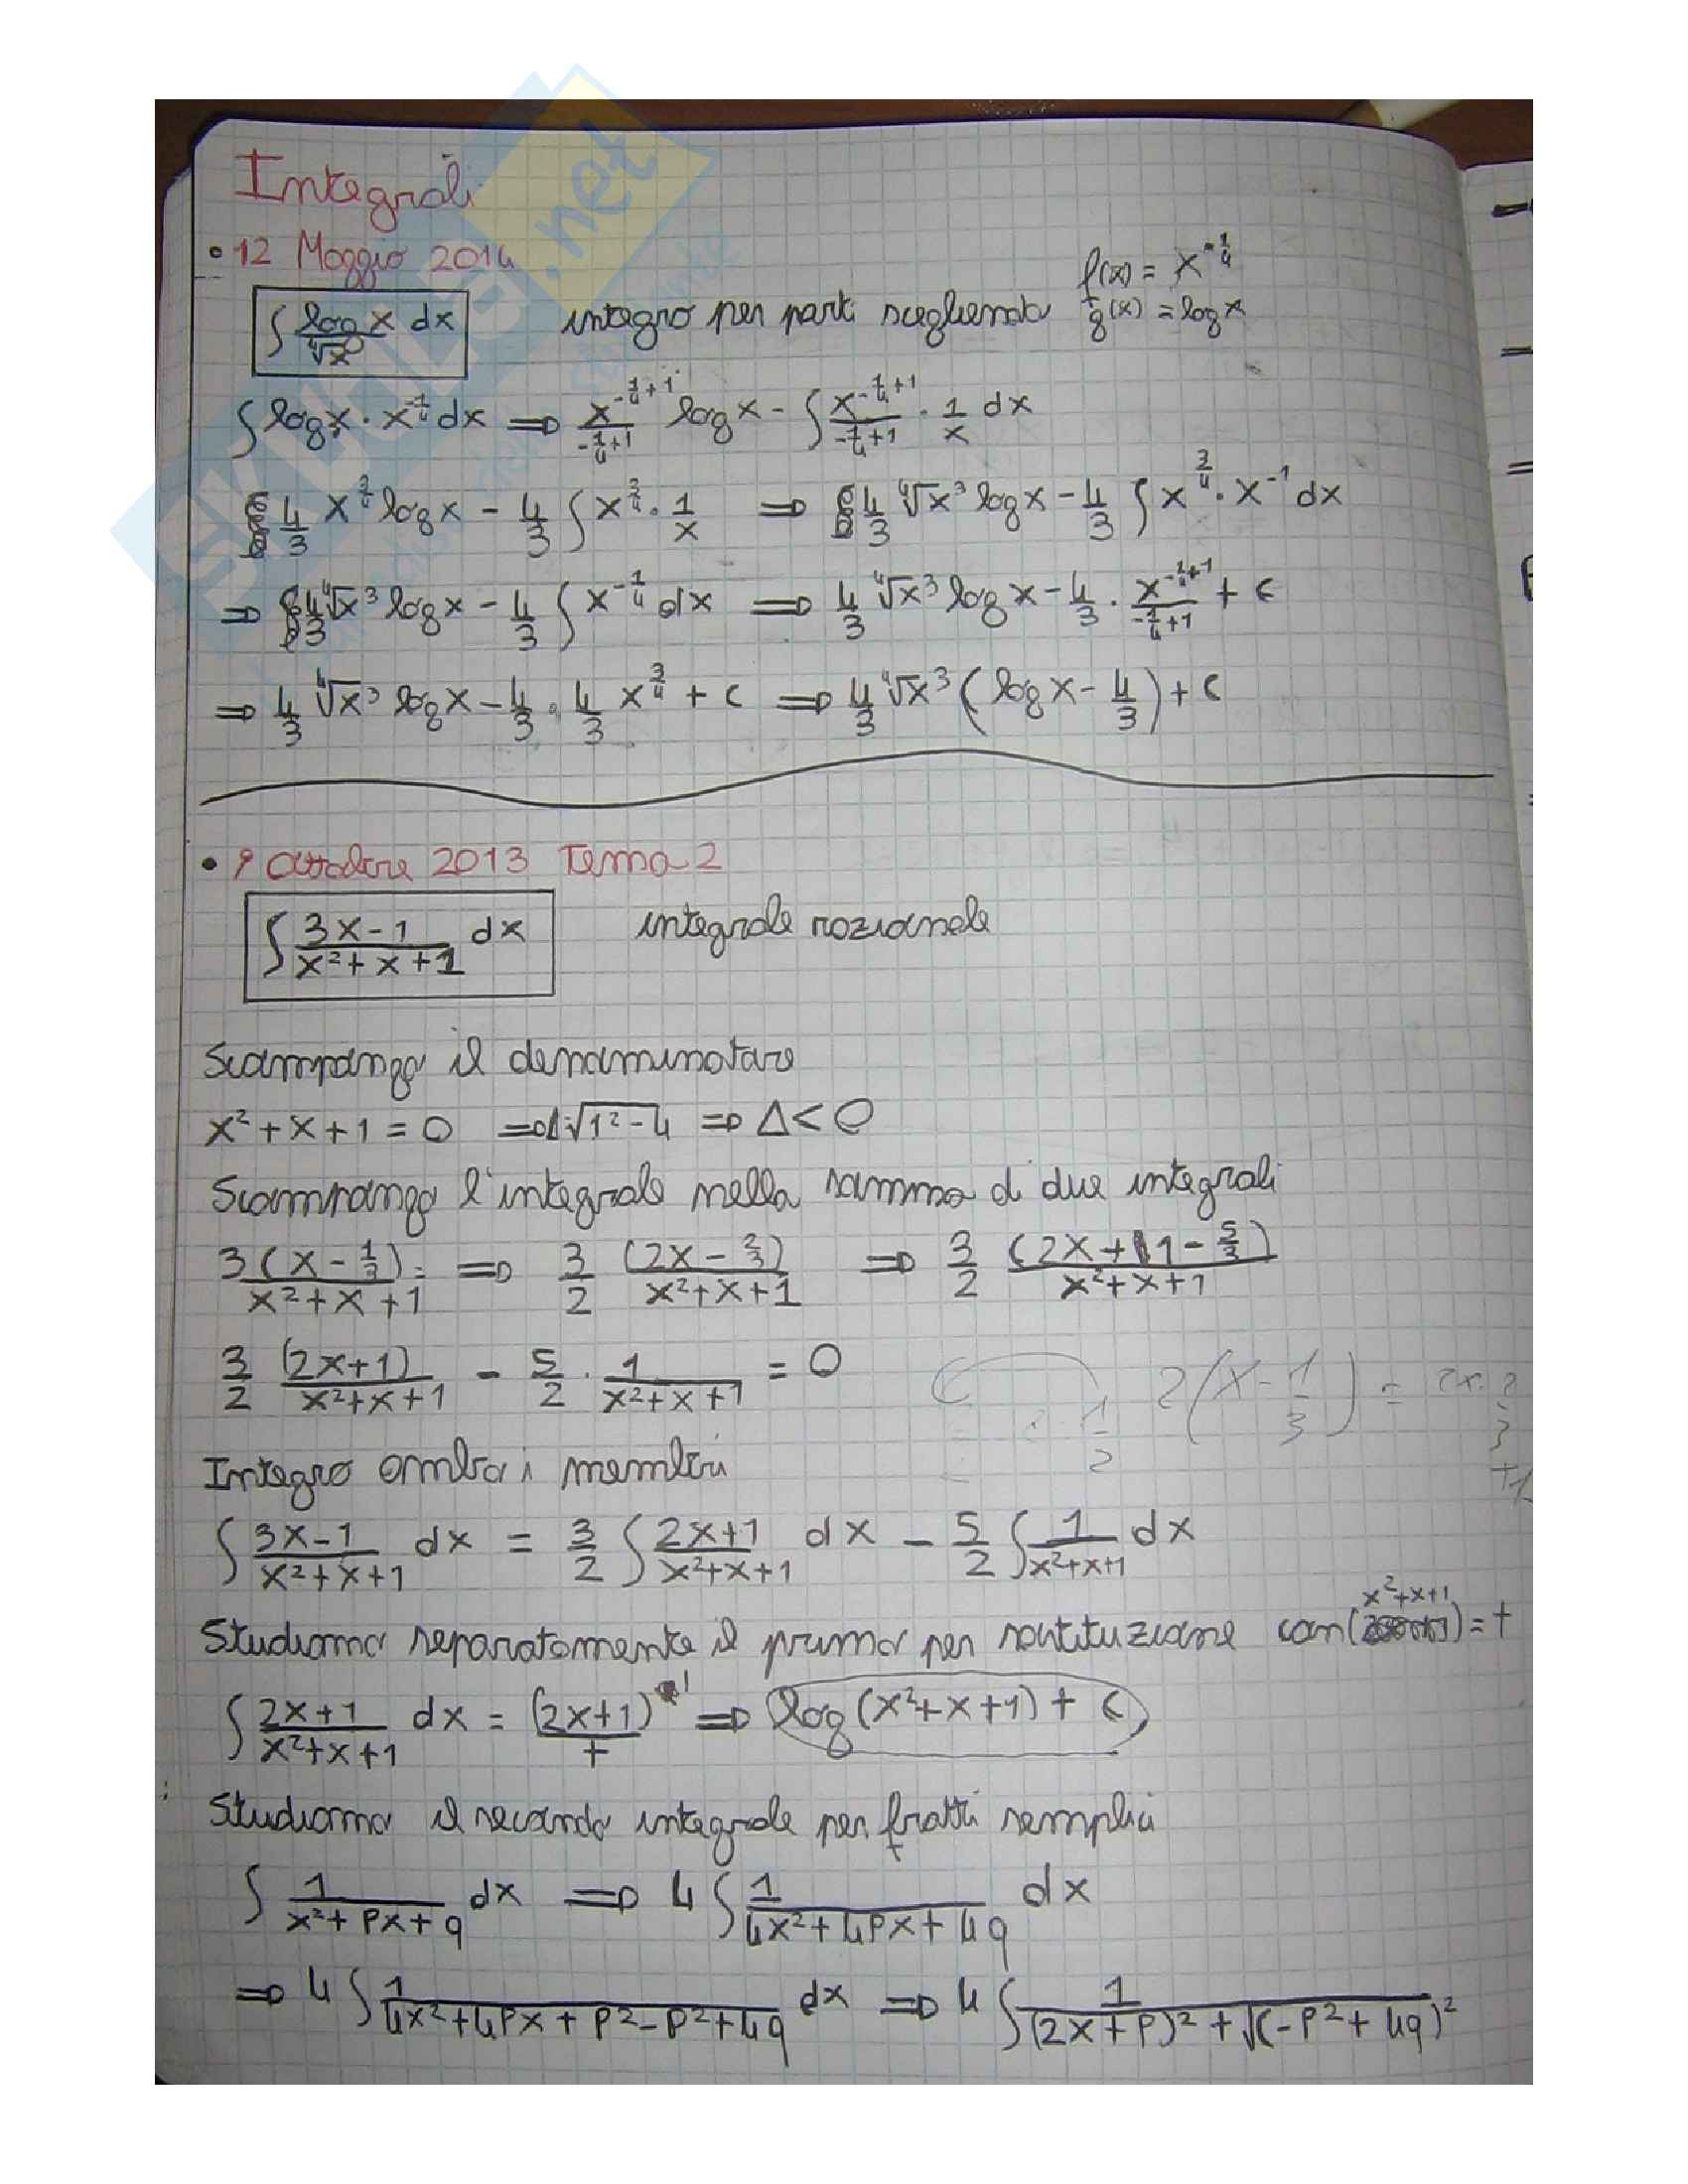 Integrali
• 12 Maggio 2014
∫ log x / ⁴√x dx integro per parti scegliendo f(x) = x^(-1/4)
g(x) = log x
∫ log x · x^(-1/4) dx ⇒ x^(-1/4+1) / (-1/4+1) log x - ∫ x^(-1/4+1) / (-1/4+1) · 1/x dx
4/3 x^(3/4) log x - 4/3 ∫ x^(3/4) · 1/x ⇒ 4/3 ⁴√x³ log x - 4/3 ∫ x^(3/4) · x^(-1) dx
⇒ 4/3 ⁴√x³ log x - 4/3 ∫ x^(-1/4) dx ⇒ 4/3 ⁴√x³ log x - 4/3 · x^(-1/4+1) / (-1/4+1) + c
⇒ 4/3 ⁴√x³ log x - 4/3 · 4/3 x^(3/4) + c ⇒ 4/3 ⁴√x³ (log x - 4/3) + c
• 9 Ottobre 2013 Tema 2
∫ (3x-1) / (x²+x+1) dx integrale razionale
Scompongo il denominatore
x²+x+1 = 0 ⇒ Δ=√(1²-4) ⇒ Δ<0
Scompongo l'integrale nella somma di due integrali
3(x - 1/3) / (x²+x+1) = ⇒ 3/2 (2x - 2/3) / (x²+x+1) ⇒ 3/2 (2x+1 - 5/3) / (x²+x+1)
3/2 (2x+1) / (x²+x+1) - 5/2 · 1 / (x²+x+1) = 0
2(x - 1/3) = 2x - 2/3
1/2
+1
Integro ambo i membri
∫ (3x-1) / (x²+x+1) dx = 3/2 ∫ (2x+1) / (x²+x+1) dx - 5/2 ∫ 1 / (x²+x+1) dx
x²+x+1
Studiamo separatamente il primo per sostituzione con ( ) = t
∫ (2x+1) / (x²+x+1) dx = (2x+1)^1 / t ⇒ log(x²+x+1) + c
Studiamo il secondo integrale per fratti semplici
∫ 1 / (x²+px+q) dx ⇒ 4 ∫ 1 / (4x²+4px+4q) dx
⇒ 4 ∫ 1 / (4x²+4px+p²-p²+4q) dx ⇒ 4 ∫ 1 / ((2x+p)² + √(-p²+4q)²)
SKUOLA.net